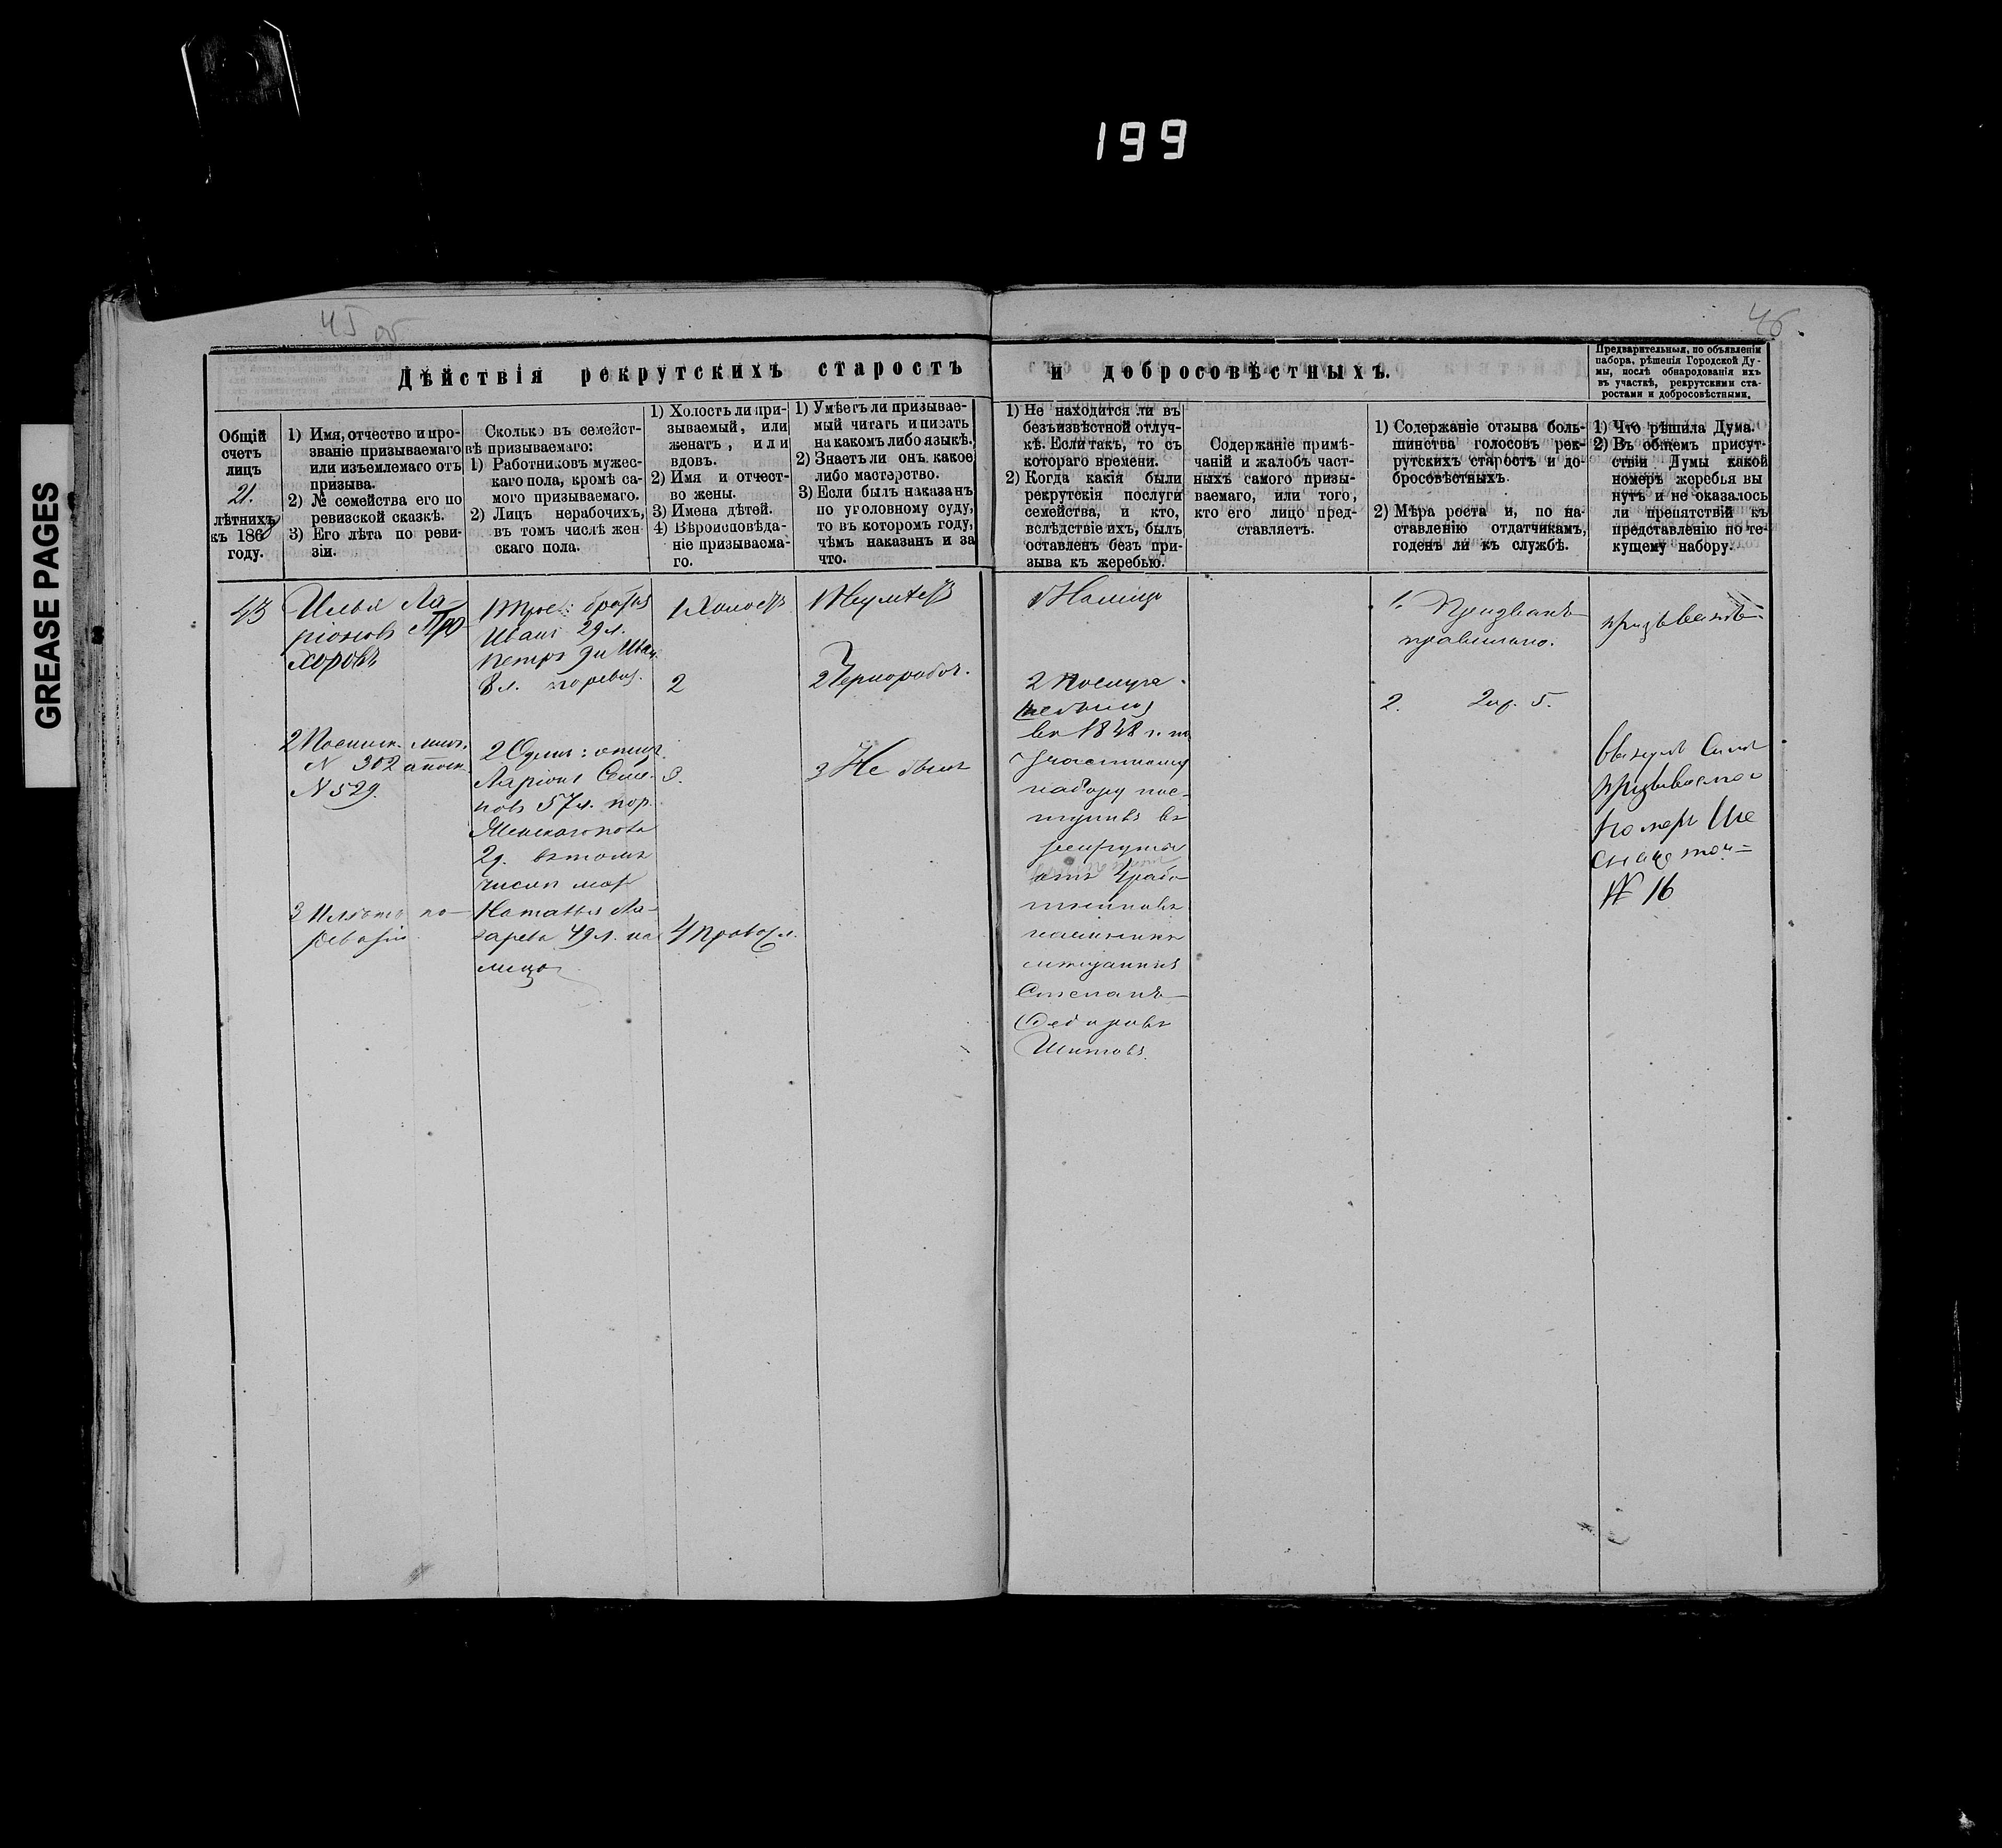 199
GREASE PAGES
45 об
46.
Дѣйствія рекрутскихъ старостъ
и добросовѣстныхъ.
Предварительныя, по объявленіи
набора, рѣшенія Городской Ду-
мы, послѣ обнародованія ихъ
въ участкѣ, рекрутскими ста-
ростами и добросовѣстными.
Общій
счетъ
лицъ
21.
лѣтнихъ
къ 1868
году.
1) Имя, отчество и про-
званіе призываемаго
или изъемлемаго отъ
призыва.
2) № семейства его по
ревизской сказкѣ.
3) Его лѣта по реви-
зіи.
Сколько въ семейст-
вѣ призываемаго:
1) Работниковъ мужес-
каго пола, кромѣ са-
мого призываемаго.
2) Лицъ нерабочихъ,
въ томъ числѣ жен
скаго пола.
1) Холостъ ли при-
зываемый, или
женатъ, или
вдовъ.
2) Имя и отчест-
во жены.
3) Имена дѣтей.
4) Вѣроисповѣда-
ніе призываема-
го.
1) Умѣетъ ли призывае-
мый читать и писать
на какомъ либо языкѣ.
2) Знаетъ ли онъ, какое
либо мастерство.
3) Если былъ наказанъ
по уголовному суду,
то въ которомъ году,
чѣмъ наказанъ и за
что.
1) Не находится ли въ
безъизвѣстной отлуч-
кѣ. Если такъ, то съ
котораго времени.
2) Когда какія были
рекрутскія послуги
семейства, и кто,
вслѣдствіе ихъ, былъ
оставленъ безъ при-
зыва къ жеребью.
Содержаніе примѣ-
чаній и жалобъ част-
ныхъ самого призы-
ваемаго, или того,
кто его лицо пред-
ставляетъ.
1) Содержаніе отзыва боль-
шинства голосовъ рек-
рутскихъ старостъ и до-
бросовѣстныхъ.
2) Мѣра роста и, по на-
ставленію отдатчикамъ,
годенъ ли къ службѣ.
1) Что рѣшила Дума.
2) Въ общемъ присут-
ствіи Думы какой
номеръ жеребья вы
нутъ и не оказалось
ли препятствій къ
представленію по те-
кущему набору.
43
Илья Ла-
ріоновъ Про-
хоровъ
2
N 302
N 529.
3
по
ревизіи
1 Трое: братья
Иванъ 29 л.
Петръ Иван
8 л. по ревиз.
2 Одинъ: отецъ
Ларіонъ Семе-
новъ 57 л. пор.
Женскаго пола
2 д. въ томъ
числѣ мат
Наталья Ла-
зарева 49 л. на
лицо
1 Холостъ
2
3.
4 Правосл.
1 Неумѣетъ
2 Чернорабоч.
3 Не былъ
1 Налицо
2 Послуга
въ 1848 г. по
частному
набору пос-
тупилъ въ
рекруты
отъ 4 рабо
тниковъ
Степанъ
Федоровъ
Шитовъ.
1. Призванъ
правильно.
2. 2 ар. 5.
призывается
вынулъ Самъ
призываемый
номеръ Ше
снадцатый
№ 16